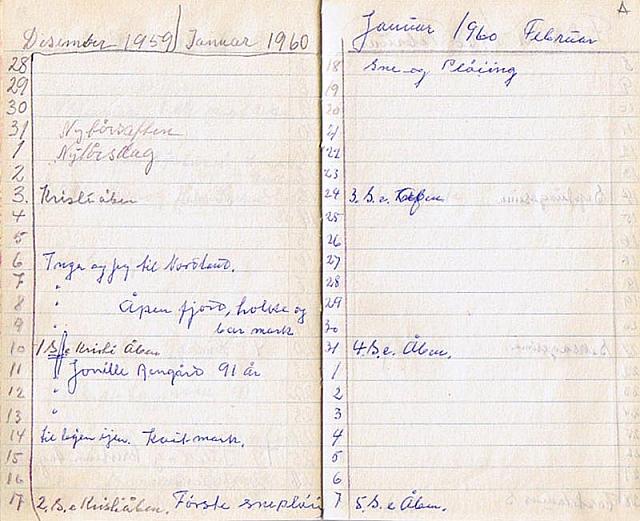 Desember 1959 / Januar 1960
28
29
30
31 Nyttårsaften
1 Nyttårsdag
2
3. Kristi åben
4
5
6 Inga og jeg til Nordland.
7 "
8 " Åpen fjord, holke og
9 " bar mark
10 1 S. e Kristi Åben
11 " 91 år
12 "
13 "
14 til igjen. Kvit mark.
15
16
17 2. S. e Kristi åben. Förste
Januar 1960 Februar
A
18 Sne og Plöiing
19
20
21
22
23
24 3. S. e.
25
26
27
28
29
30
31 4. S e. Åben.
1
2
3
4
5
6
7 5. S e Åben.